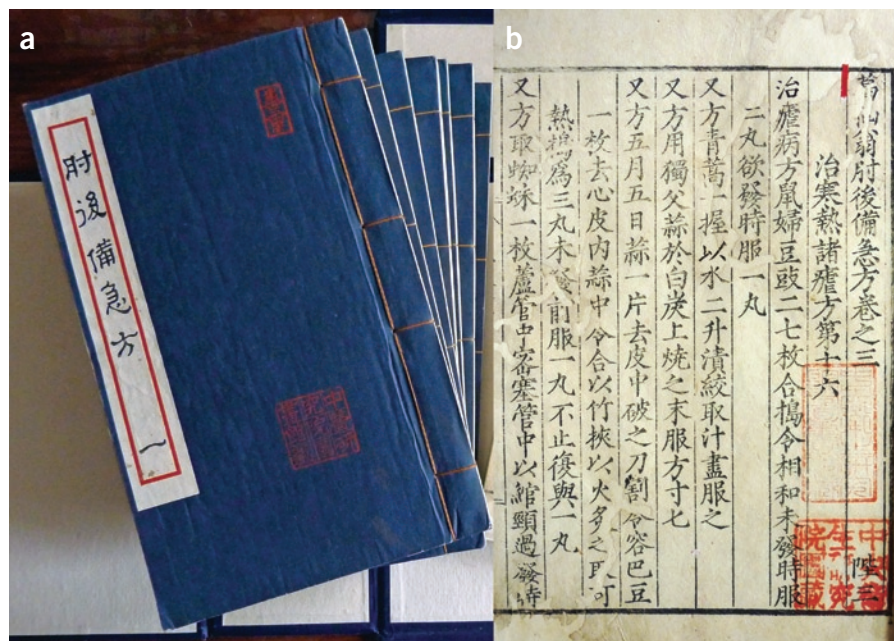 a
肘後備急方
一
b
葛仙翁肘後備急方卷之三
治寒熱諸瘧方第十六
治瘧病方鼠婦豆豉二七枚合搗令相和未發時服
二丸欲發時服一丸
又方青蒿一握以水二升漬絞取汁盡服之
又方用獨父蒜於白炭上燒之末服方寸七
又方五月五日蒜一片去皮中破之刀割令容巴豆
一枚去心皮內蒜中令合以竹挾以火炙之取可
熱搗爲三丸未發前服一丸不止復與一丸
又方取蜘蛛一枚蘆管中密塞管中以綰頸過發時